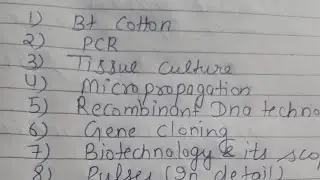 1) Bt Cotton
2) PCR
3) Tissue Culture
4) Micropropagation
5) Recombinant Dna techno
6) Gene cloning
7) Biotechnology & its scop
8) Pulses (In detail)